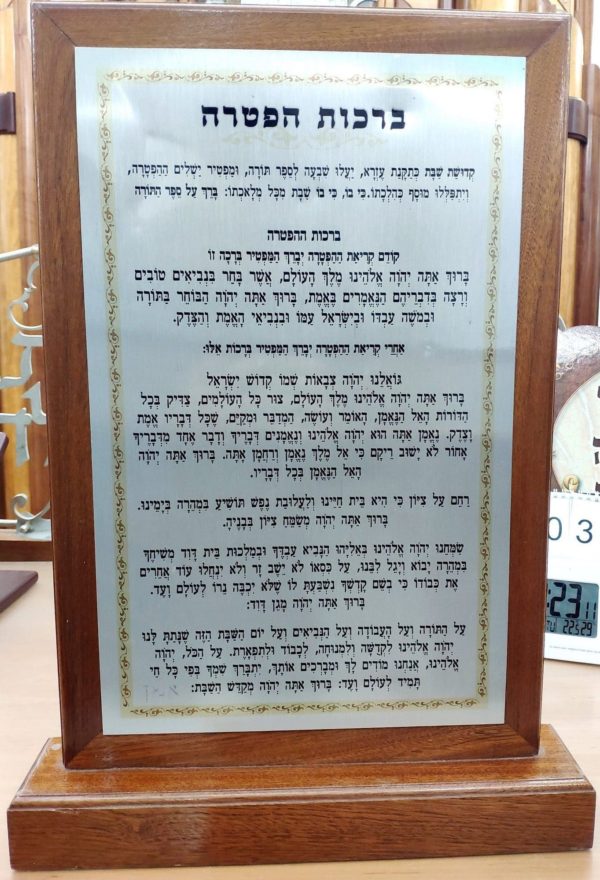 ברכות הפטרה
קְדוּשַׁת שַׁבָּת כְּתַקָּנַת עֶזְרָא, יַעֲלוּ שִׁבְעָה לְסֵפֶר תּוֹרָה, וּמַפְטִיר יַשְׁלִים הַהַפְטָרָה,
וְיִתְפַּלְלוּ מוּסָף כְּהִלְכָתוֹ. כִּי בוֹ, כִּי בוֹ שָׁבַת מִכָּל מְלַאכְתּוֹ: בָּרֵךְ עַל סֵפֶר הַתּוֹרָה
ברכות ההפטרה
קוֹדֶם קְרִיאַת הַהַפְטָרָה יְבָרֵךְ הַמַּפְטִיר בְּרָכָה זוֹ
בָּרוּךְ אַתָּה יְהֹוָה אֱלֹהֵינוּ מֶלֶךְ הָעוֹלָם, אֲשֶׁר בָּחַר בִּנְבִיאִים טוֹבִים
וְרָצָה בְדִבְרֵיהֶם הַנֶּאֱמָרִים בֶּאֱמֶת, בָּרוּךְ אַתָּה יְהֹוָה הַבּוֹחֵר בַּתּוֹרָה
וּבְמֹשֶׁה עַבְדּוֹ וּבְיִשְׂרָאֵל עַמּוֹ וּבִנְבִיאֵי הָאֱמֶת וְהַצֶּדֶק.
אַחֲרֵי קְרִיאַת הַהַפְטָרָה יְבָרֵךְ הַמַּפְטִיר בְּרָכוֹת אֵלּוּ:
גּוֹאֲלֵנוּ יְהֹוָה צְבָאוֹת שְׁמוֹ קְדוֹשׁ יִשְׂרָאֵל
בָּרוּךְ אַתָּה יְהֹוָה אֱלֹהֵינוּ מֶלֶךְ הָעוֹלָם, צוּר כָּל הָעוֹלָמִים, צַדִּיק בְּכָל
הַדּוֹרוֹת הָאֵל הַנֶּאֱמָן, הָאוֹמֵר וְעוֹשֶׂה, הַמְדַבֵּר וּמְקַיֵּם, שֶׁכָּל דְּבָרָיו אֱמֶת
וָצֶדֶק. נֶאֱמָן אַתָּה הוּא יְהֹוָה אֱלֹהֵינוּ וְנֶאֱמָנִים דְּבָרֶיךָ וְדָבָר אֶחָד מִדְּבָרֶיךָ
אָחוֹר לֹא יָשׁוּב רֵיקָם כִּי אֵל מֶלֶךְ נֶאֱמָן וְרַחֲמָן אָתָּה. בָּרוּךְ אַתָּה יְהֹוָה
הָאֵל הַנֶּאֱמָן בְּכָל דְּבָרָיו.
רַחֵם עַל צִיּוֹן כִּי הִיא בֵּית חַיֵּינוּ וְלַעֲלוּבַת נֶפֶשׁ תּוֹשִׁיעַ בִּמְהֵרָה בְיָמֵינוּ.
בָּרוּךְ אַתָּה יְהֹוָה מְשַׂמֵּחַ צִיּוֹן בְּבָנֶיהָ.
שַׂמְּחֵנוּ יְהֹוָה אֱלֹהֵינוּ בְּאֵלִיָּהוּ הַנָּבִיא עַבְדֶּךָ וּבְמַלְכוּת בֵּית דָּוִד מְשִׁיחֶךָ
בִּמְהֵרָה יָבוֹא וְיָגֵל לִבֵּנוּ, עַל כִּסְאוֹ לֹא יֵשֶׁב זָר וְלֹא יִנְחֲלוּ עוֹד אֲחֵרִים
אֶת כְּבוֹדוֹ כִּי בְשֵׁם קָדְשְׁךָ נִשְׁבַּעְתָּ לּוֹ שֶׁלֹּא יִכְבֶּה נֵרוֹ לְעוֹלָם וָעֶד.
בָּרוּךְ אַתָּה יְהֹוָה מָגֵן דָּוִד:
עַל הַתּוֹרָה וְעַל הָעֲבוֹדָה וְעַל הַנְּבִיאִים וְעַל יוֹם הַשַּׁבָּת הַזֶּה שֶׁנָּתַתָּ לָּנוּ
יְהֹוָה אֱלֹהֵינוּ לִקְדֻשָּׁה וְלִמְנוּחָה, לְכָבוֹד וּלְתִפְאָרֶת. עַל הַכֹּל, יְהֹוָה
אֱלֹהֵינוּ, אֲנַחְנוּ מוֹדִים לָךְ וּמְבָרְכִים אוֹתָךְ, יִתְבָּרַךְ שִׁמְךָ בְּפִי כָּל חַי
תָּמִיד לְעוֹלָם וָעֶד: בָּרוּךְ אַתָּה יְהֹוָה מְקַדֵּשׁ הַשַּׁבָּת: אמן
03
:23 11
22 29